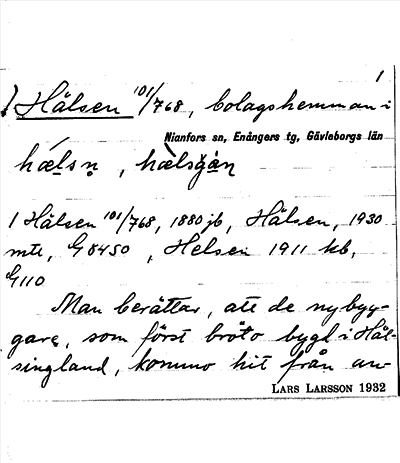 1
1 Hälsen 101/768, bolagshemman i
Nianfors sn, Enångers tg, Gävleborgs län
hælsn̥, hælsgån
1 Hälsen 101/768, 1880 jb, Hälsen, 1930
mtl, G 8450, Helsen 1911 kb,
G 110
Man berättar, att de nybyg-
gare, som först bröto bygd i Häl-
singland, kommo hit från an-
LARS LARSSON 1932